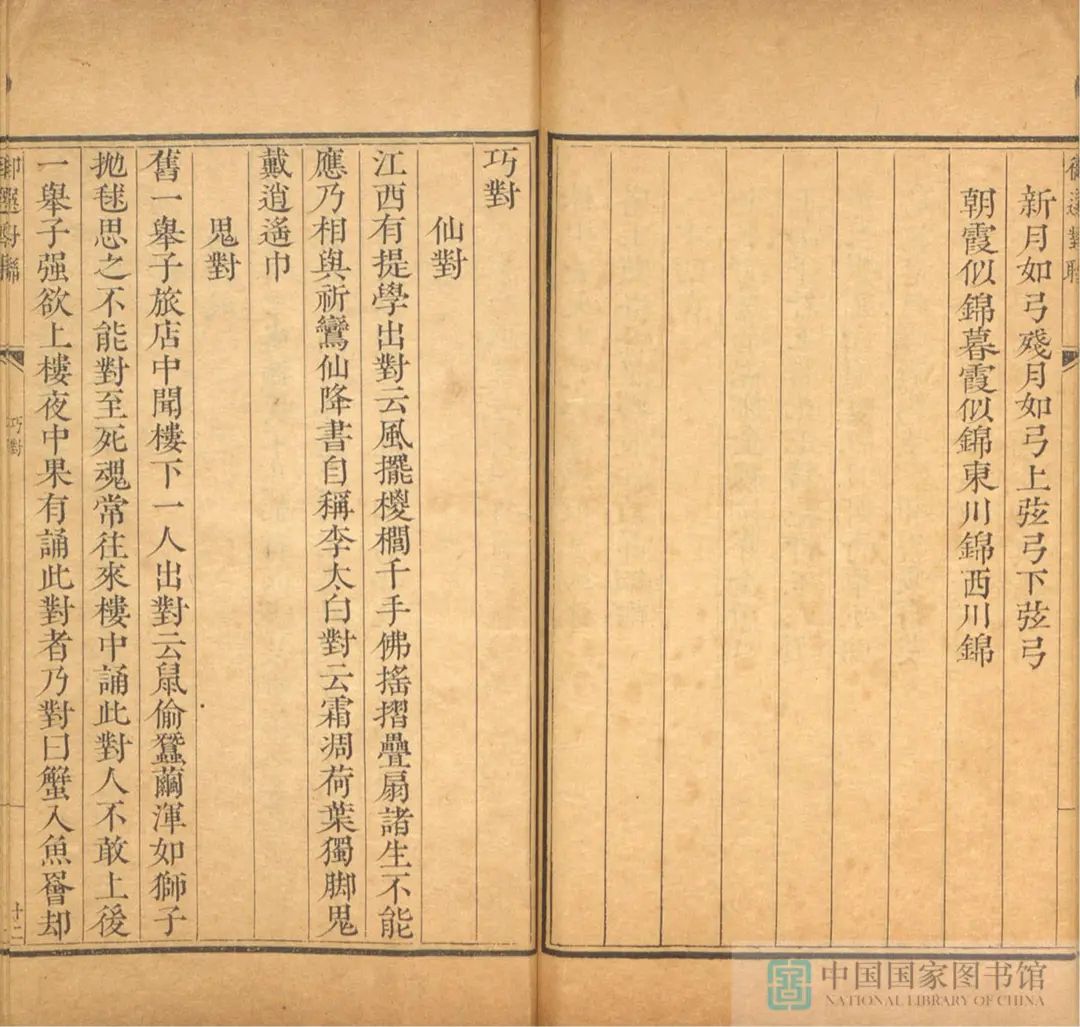 新月如弓殘月如弓上弦弓下弦弓
朝霞似錦暮霞似錦東川錦西川錦
巧對
仙對
江西有提學出對云風擺櫻櫚千手佛搖摺疊扇諸生不能
應乃相與祈鸞仙降書自稱李太白對云霜凋荷葉獨脚鬼
戴逍遙巾
鬼對
舊一舉子旅店中聞樓下一人出對云鼠偷蠶繭渾如獅子
抛毬思之不能對至死魂常往來樓中誦此對人不敢上後
一舉子强欲上樓夜中果有誦此對者乃對曰蟹入魚罾却
巧對
十二
中国国家图书馆
NATIONAL LIBRARY OF CHINA